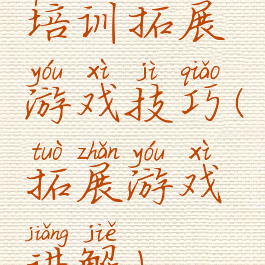 培训拓展
yóu xì jì qiǎo
游戏技巧(
tuò zhǎn yóu xì
拓展游戏
jiǎng jiě
讲解)